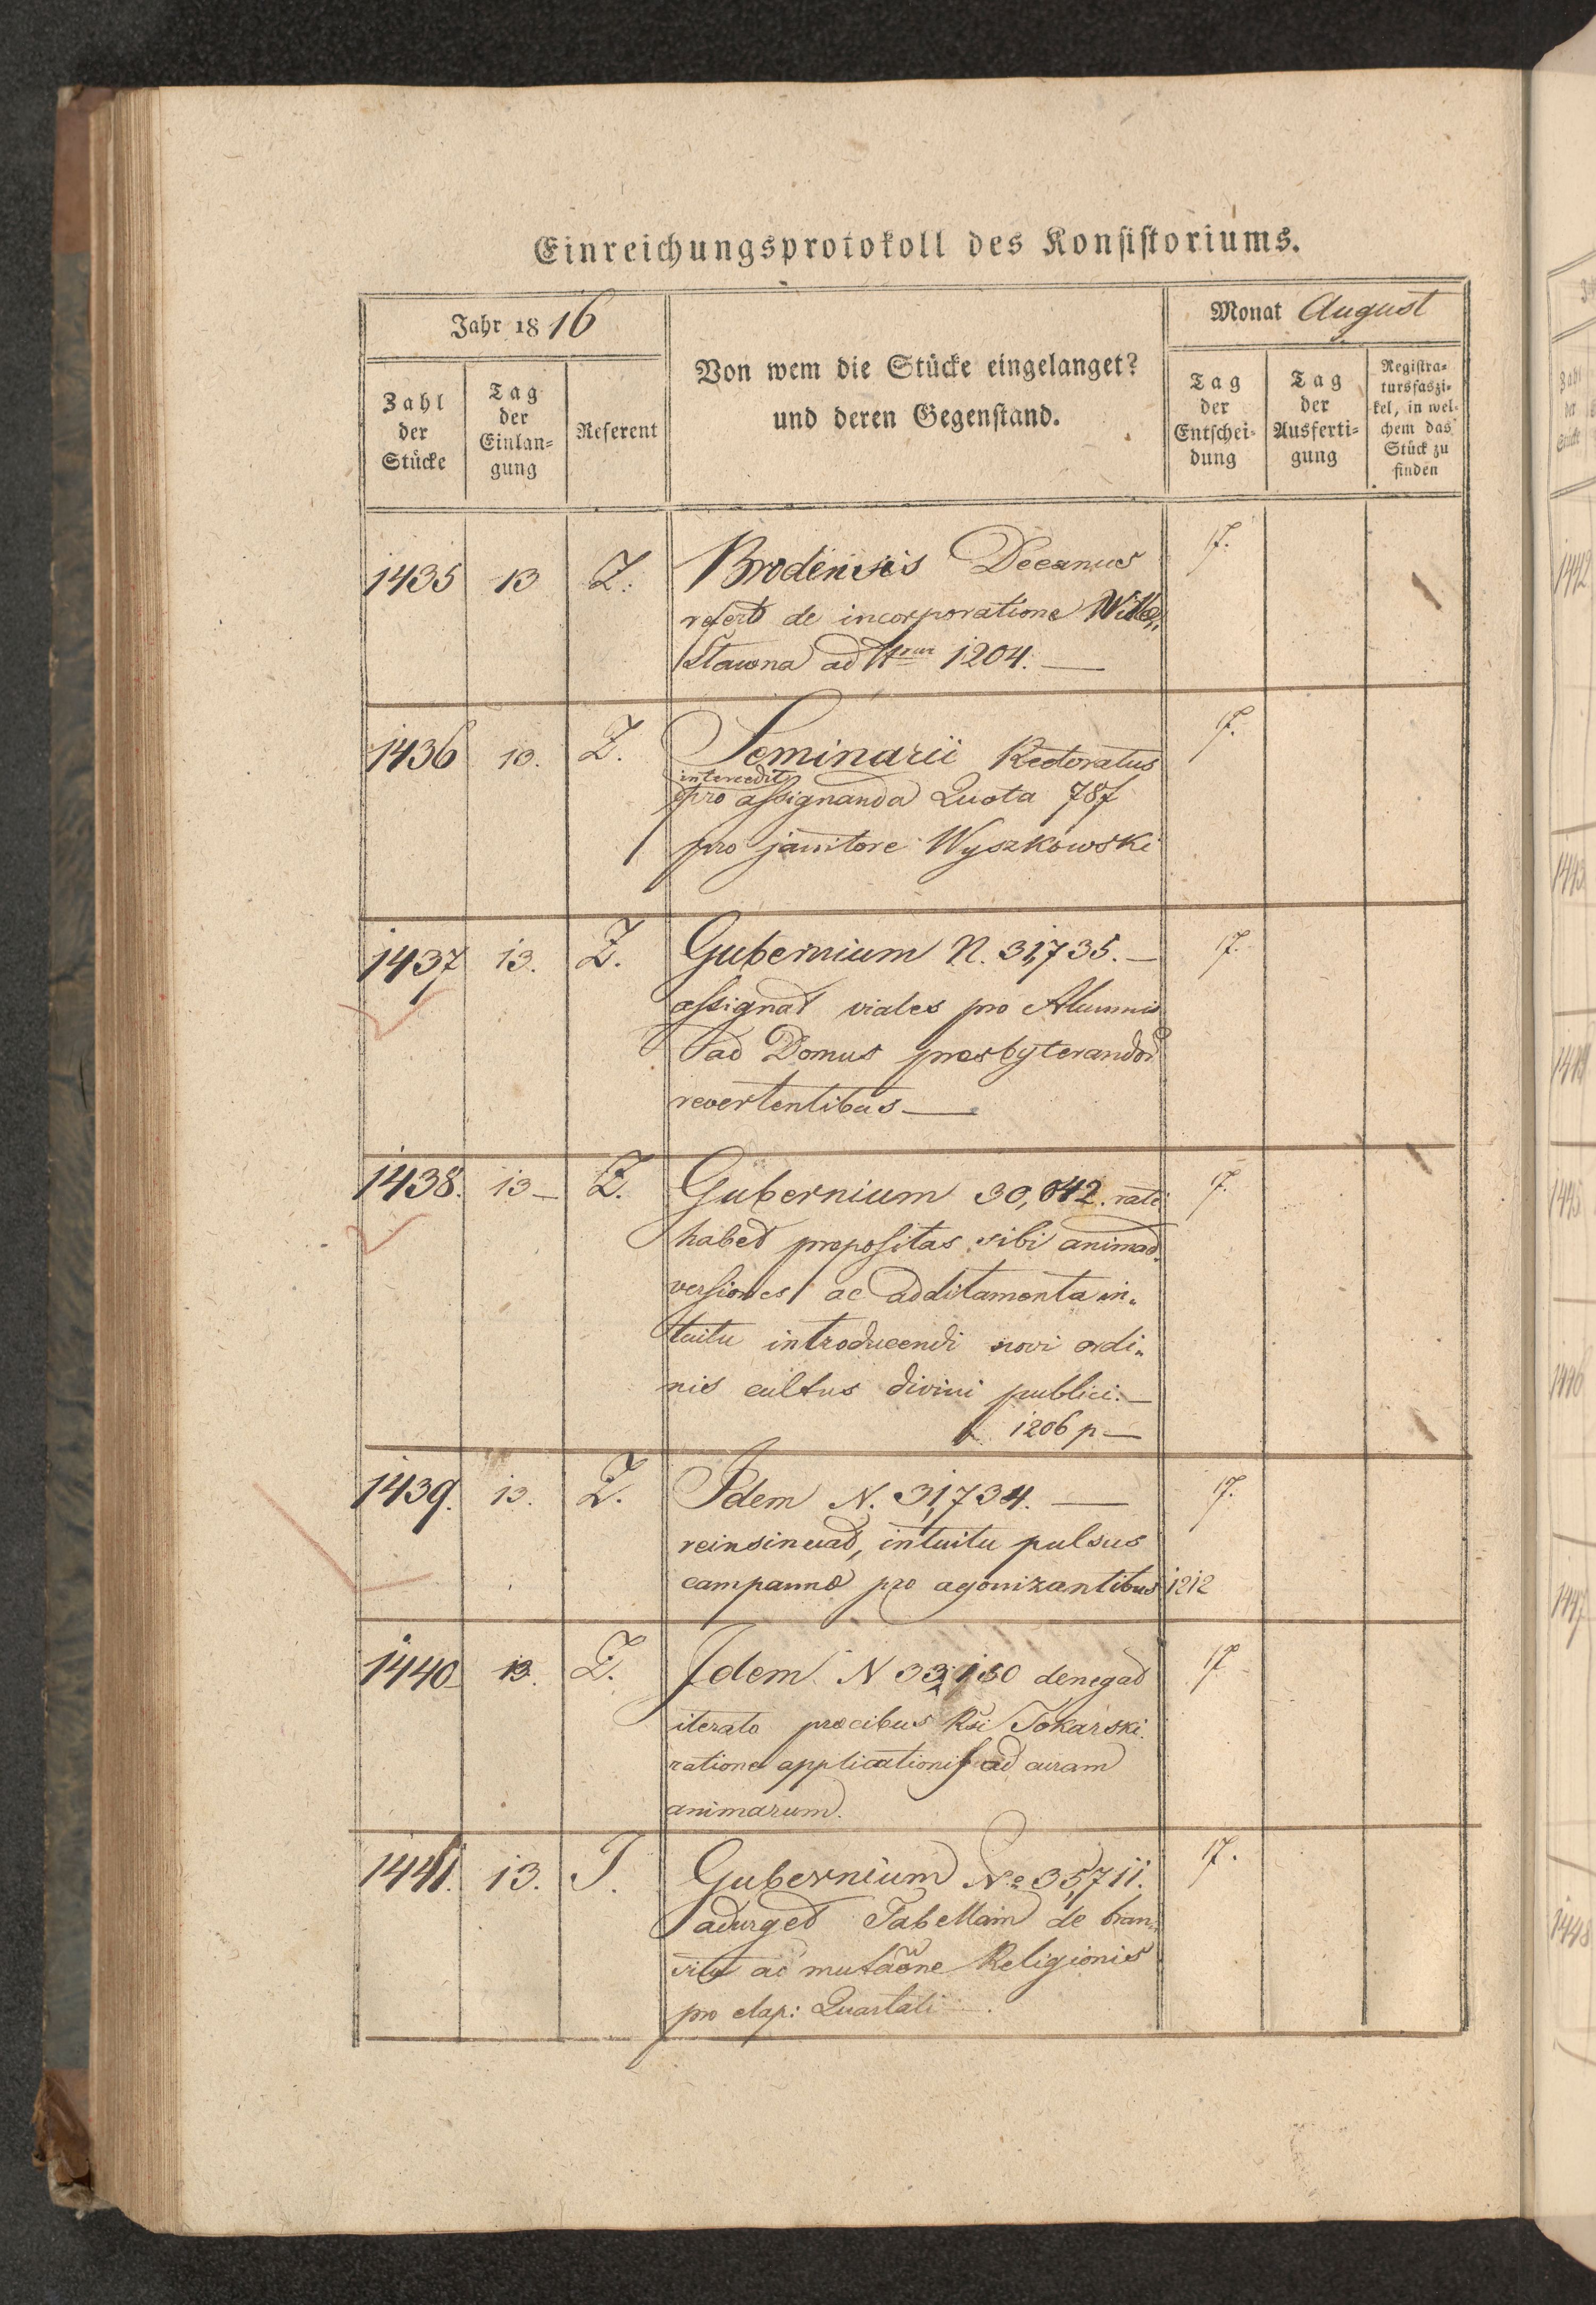 Einreichungsprotokoll des Konsistoriums.
Jahr 1816
Von wem die Stücke eingelanget?
und deren Gegenstand.
Monat August
Zahl
der
Stücke
Tag
der
Einlan-
gung
Referent
Tag
der
Entschei-
dung
Tag
der
Ausferti-
gung
Registra-
tursfaszi-
kel, in wel-
chem das
Stück zu
finden
1435 13 Z. Brodensis Decanus 17.
refert de incorporatione
Stawna ad 1204. —
1436 13. Z. Seminarii Rectoratus 17.
intercedit
pro assignanda Quota 78f
pro janitore Wyszkowski
1437 13. Z. Gubernium N. 31,735. — 17.
assignat viales pro Alumnis
ad Domus presbyterandor
revertentibus —
1438. 13 — Z. Gubernium 30,042. rati 17.
habet propositas sibi animad„
versiones ac additamenta in„
tuitu introducendi novi ordi„
nis cultus divini publici. —
1206 p —
1439. 13. Z. Idem N. 31,734. — 17.
reinsinuat, intuitu pulsus
campanae pro agonizantibus 1212
1440 13. Z. Idem N denegat 17
iterato precibus Rsi Tokarski
ratione applicationis ad curam
animarum.
1441. 13. T. Gubernium No 35,711. 17.
adurget Tabellam de tran„
situ ac mutaone Religionis
pro elap: Quartali —.